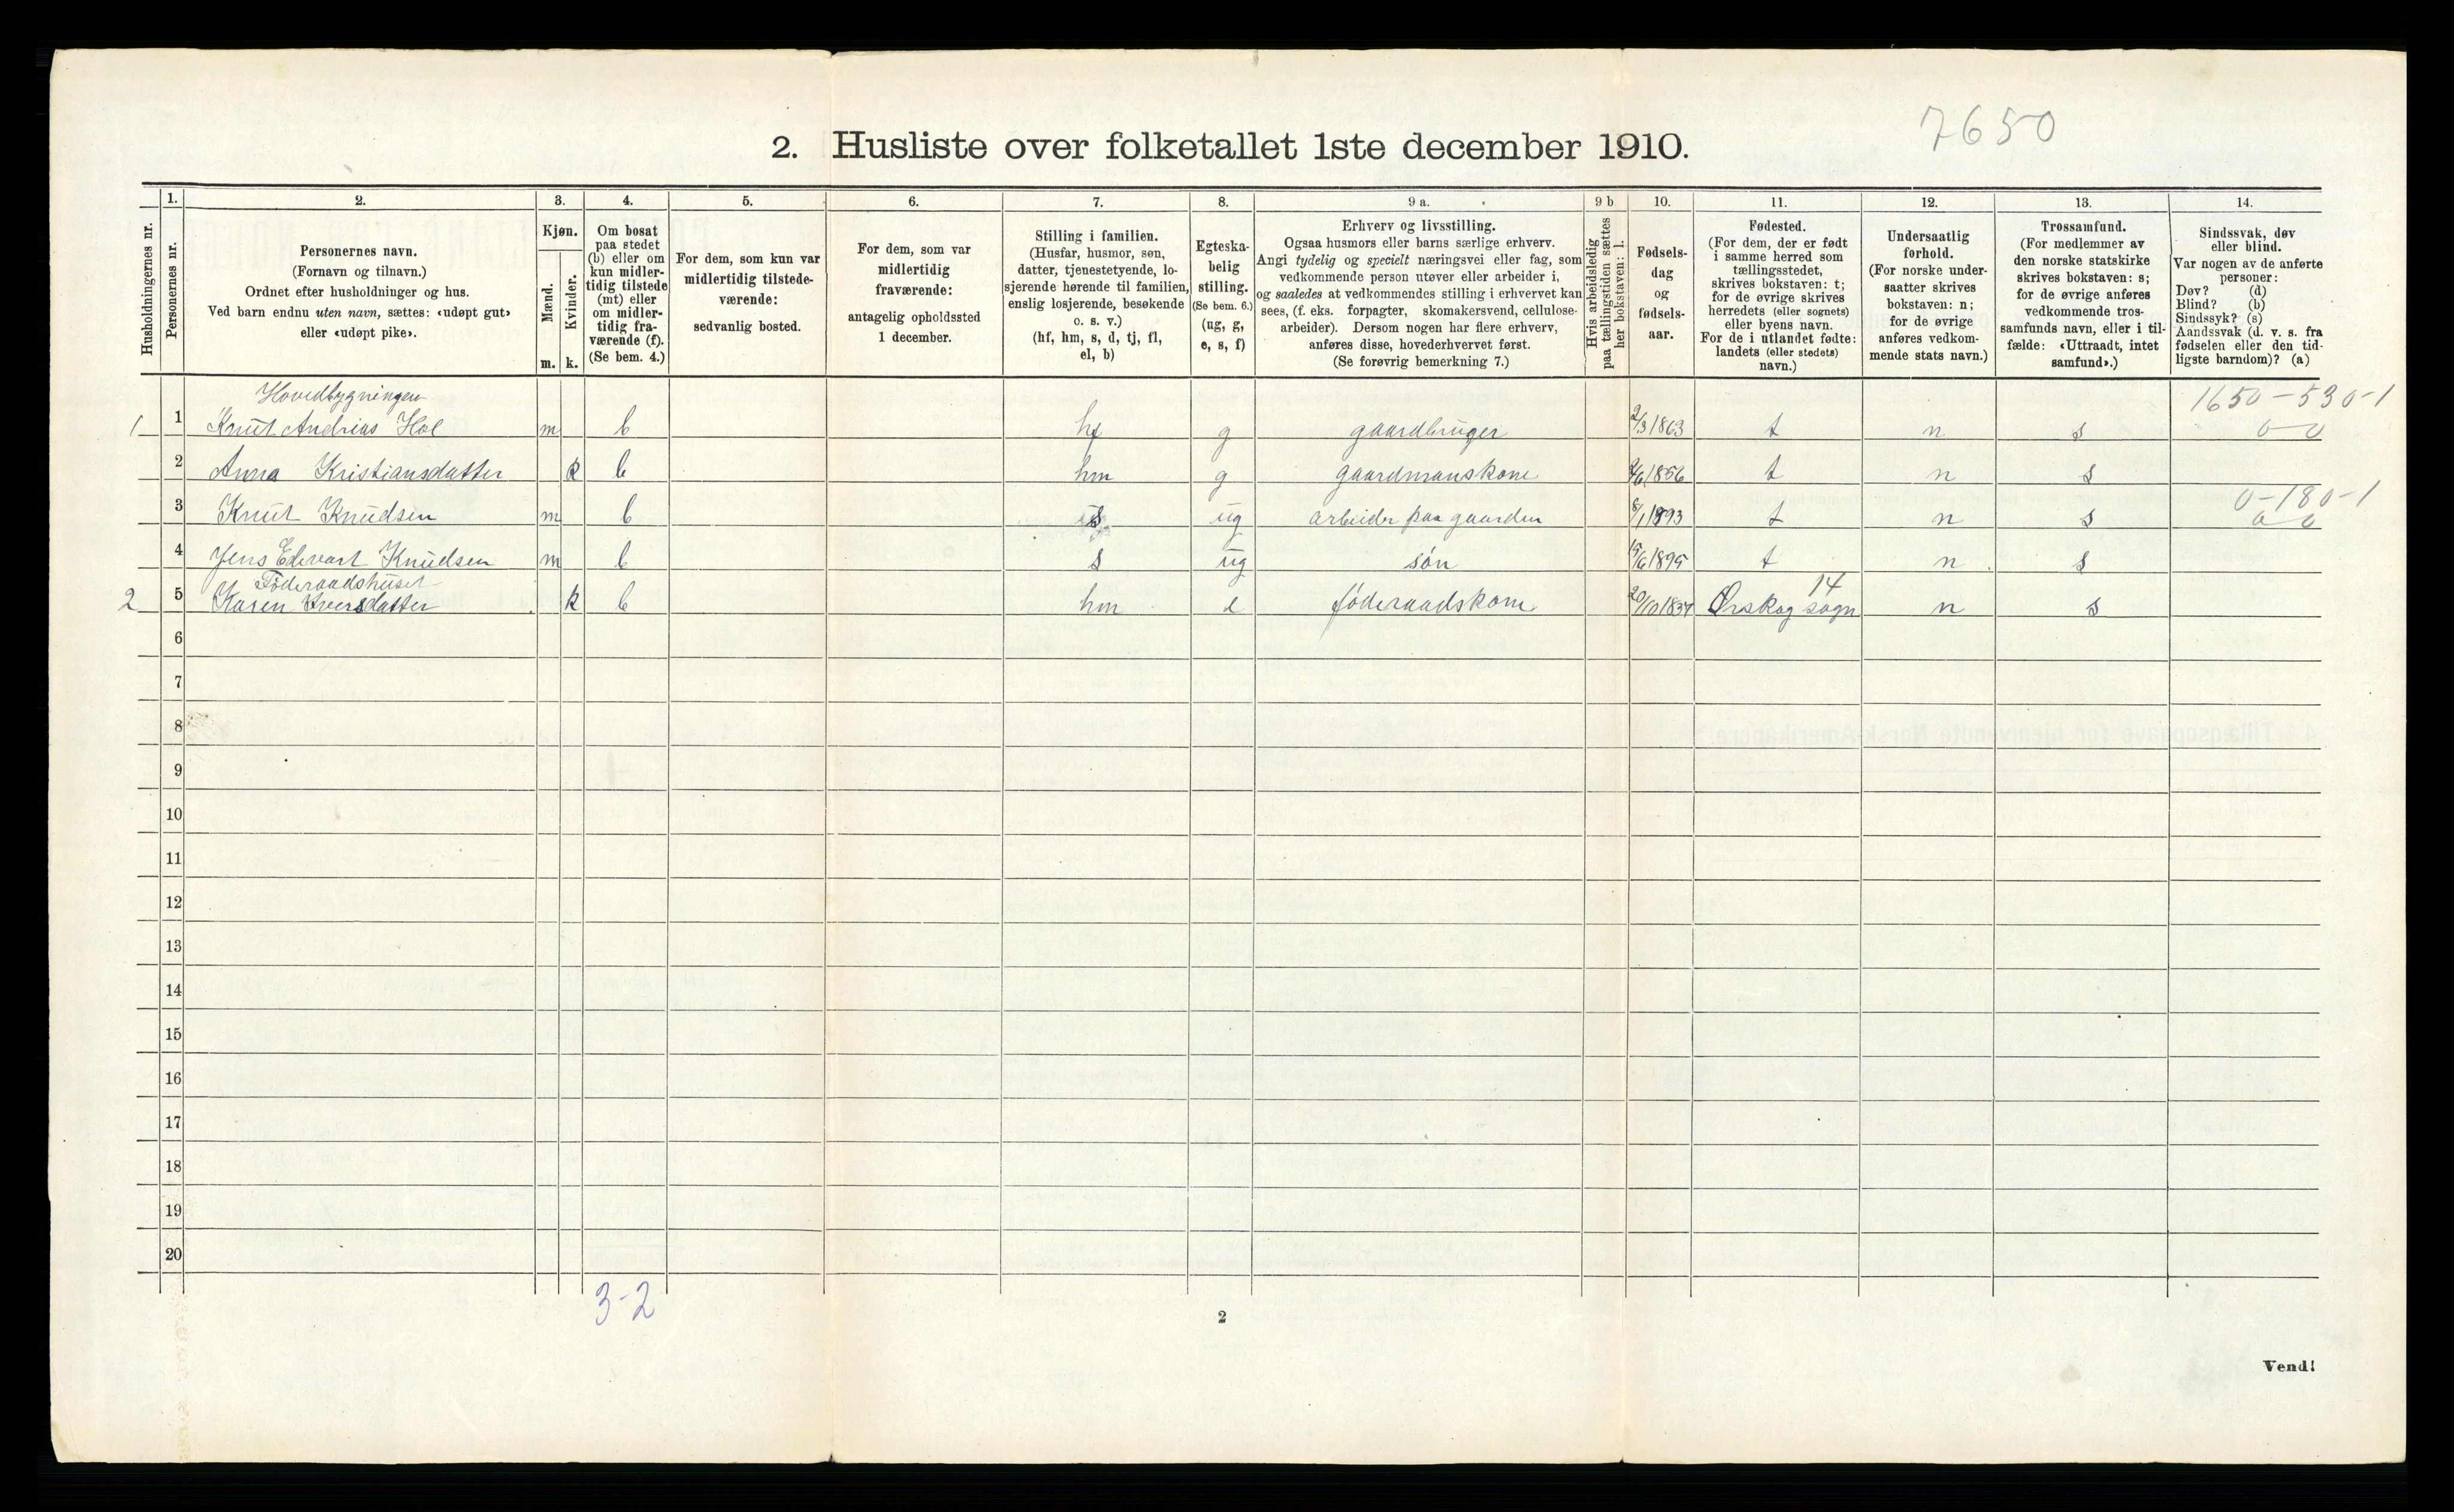 7650
2. Husliste over folketallet 1ste december 1910.
Husholdningernes nr.
1. Personernes nr.
2. Personernes navn. (Fornavn og tilnavn.) Ordnet efter husholdninger og hus. Ved barn endnu uten navn, sættes: «udøpt gut» eller «udøpt pike».
3. Kjøn. Mænd. m. Kvinder. k.
4. Om bosat paa stedet (b) eller om kun midlertidig tilstede (mt) eller om midlertidig fraværende (f). (Se bem. 4.)
5. For dem, som kun var midlertidig tilstedeværende: sedvanlig bosted.
6. For dem, som var midlertidig fraværende: antagelig opholdssted 1 december.
7. Stilling i familien. (Husfar, husmor, søn, datter, tjenestetyende, losjerende hørende til familien, enslig losjerende, besøkende o. s. v.) (hf, hm, s, d, tj, fl, el, b)
8. Egteskabelig stilling. (Se bem. 6.) (ug, g, e, s, f)
9 a. Erhverv og livsstilling. Ogsaa husmors eller barns særlige erhverv. Angi tydelig og specielt næringsvei eller fag, som vedkommende person utøver eller arbeider i, og saaledes at vedkommendes stilling i erhvervet kan sees, (f. eks. forpagter, skomakersvend, cellulosearbeider). Dersom nogen har flere erhverv, anføres disse, hovederhvervet først. (Se forøvrig bemerkning 7.)
9 b Hvis arbeidsledig paa tællingstiden sættes her bokstaven: l.
10. Fødselsdag og fødselsaar.
11. Fødested. (For dem, der er født i samme herred som tællingsstedet, skrives bokstaven: t; for de øvrige skrives herredets (eller sognets) eller byens navn. For de i utlandet fødte: landets (eller stedets) navn.)
12. Undersaatlig forhold. (For norske undersaatter skrives bokstaven: n; for de øvrige anføres vedkommende stats navn.)
13. Trossamfund. (For medlemmer av den norske statskirke skrives bokstaven: s; for de øvrige anføres vedkommende trossamfunds navn, eller i tilfælde: «Uttraadt, intet samfund».)
14. Sindssvak, døv eller blind. Var nogen av de anførte personer: Døv? (d) Blind? (b) Sindssyk? (s) Aandssvak (d. v. s. fra fødselen eller den tidligste barndom)? (a)
Hovedbygningen 1650-530-1
1 1 Knut Andrias Hol m b hf g gaardbruger 2/3 1863 t n s 0-0
2 Anna Kristiansdatter k b hm g gaardmanskone 1856 t n s
0-180-1
3 Knut Knudsen m b s ug arbeider paa gaarden 8/1 1893 t n s 0 0
4 Jens Edevart Knudsen m b s ug søn 15/6 1895 t n s
Föderaadshuset 14
2 5 Karen Iversdatter k b hm e föderaadskone 20/10 1837 Ørskog sogn n s
6
7
8
9
10
11
12
13
14
15
16
17
18
19
20
3-2
2
Vend!